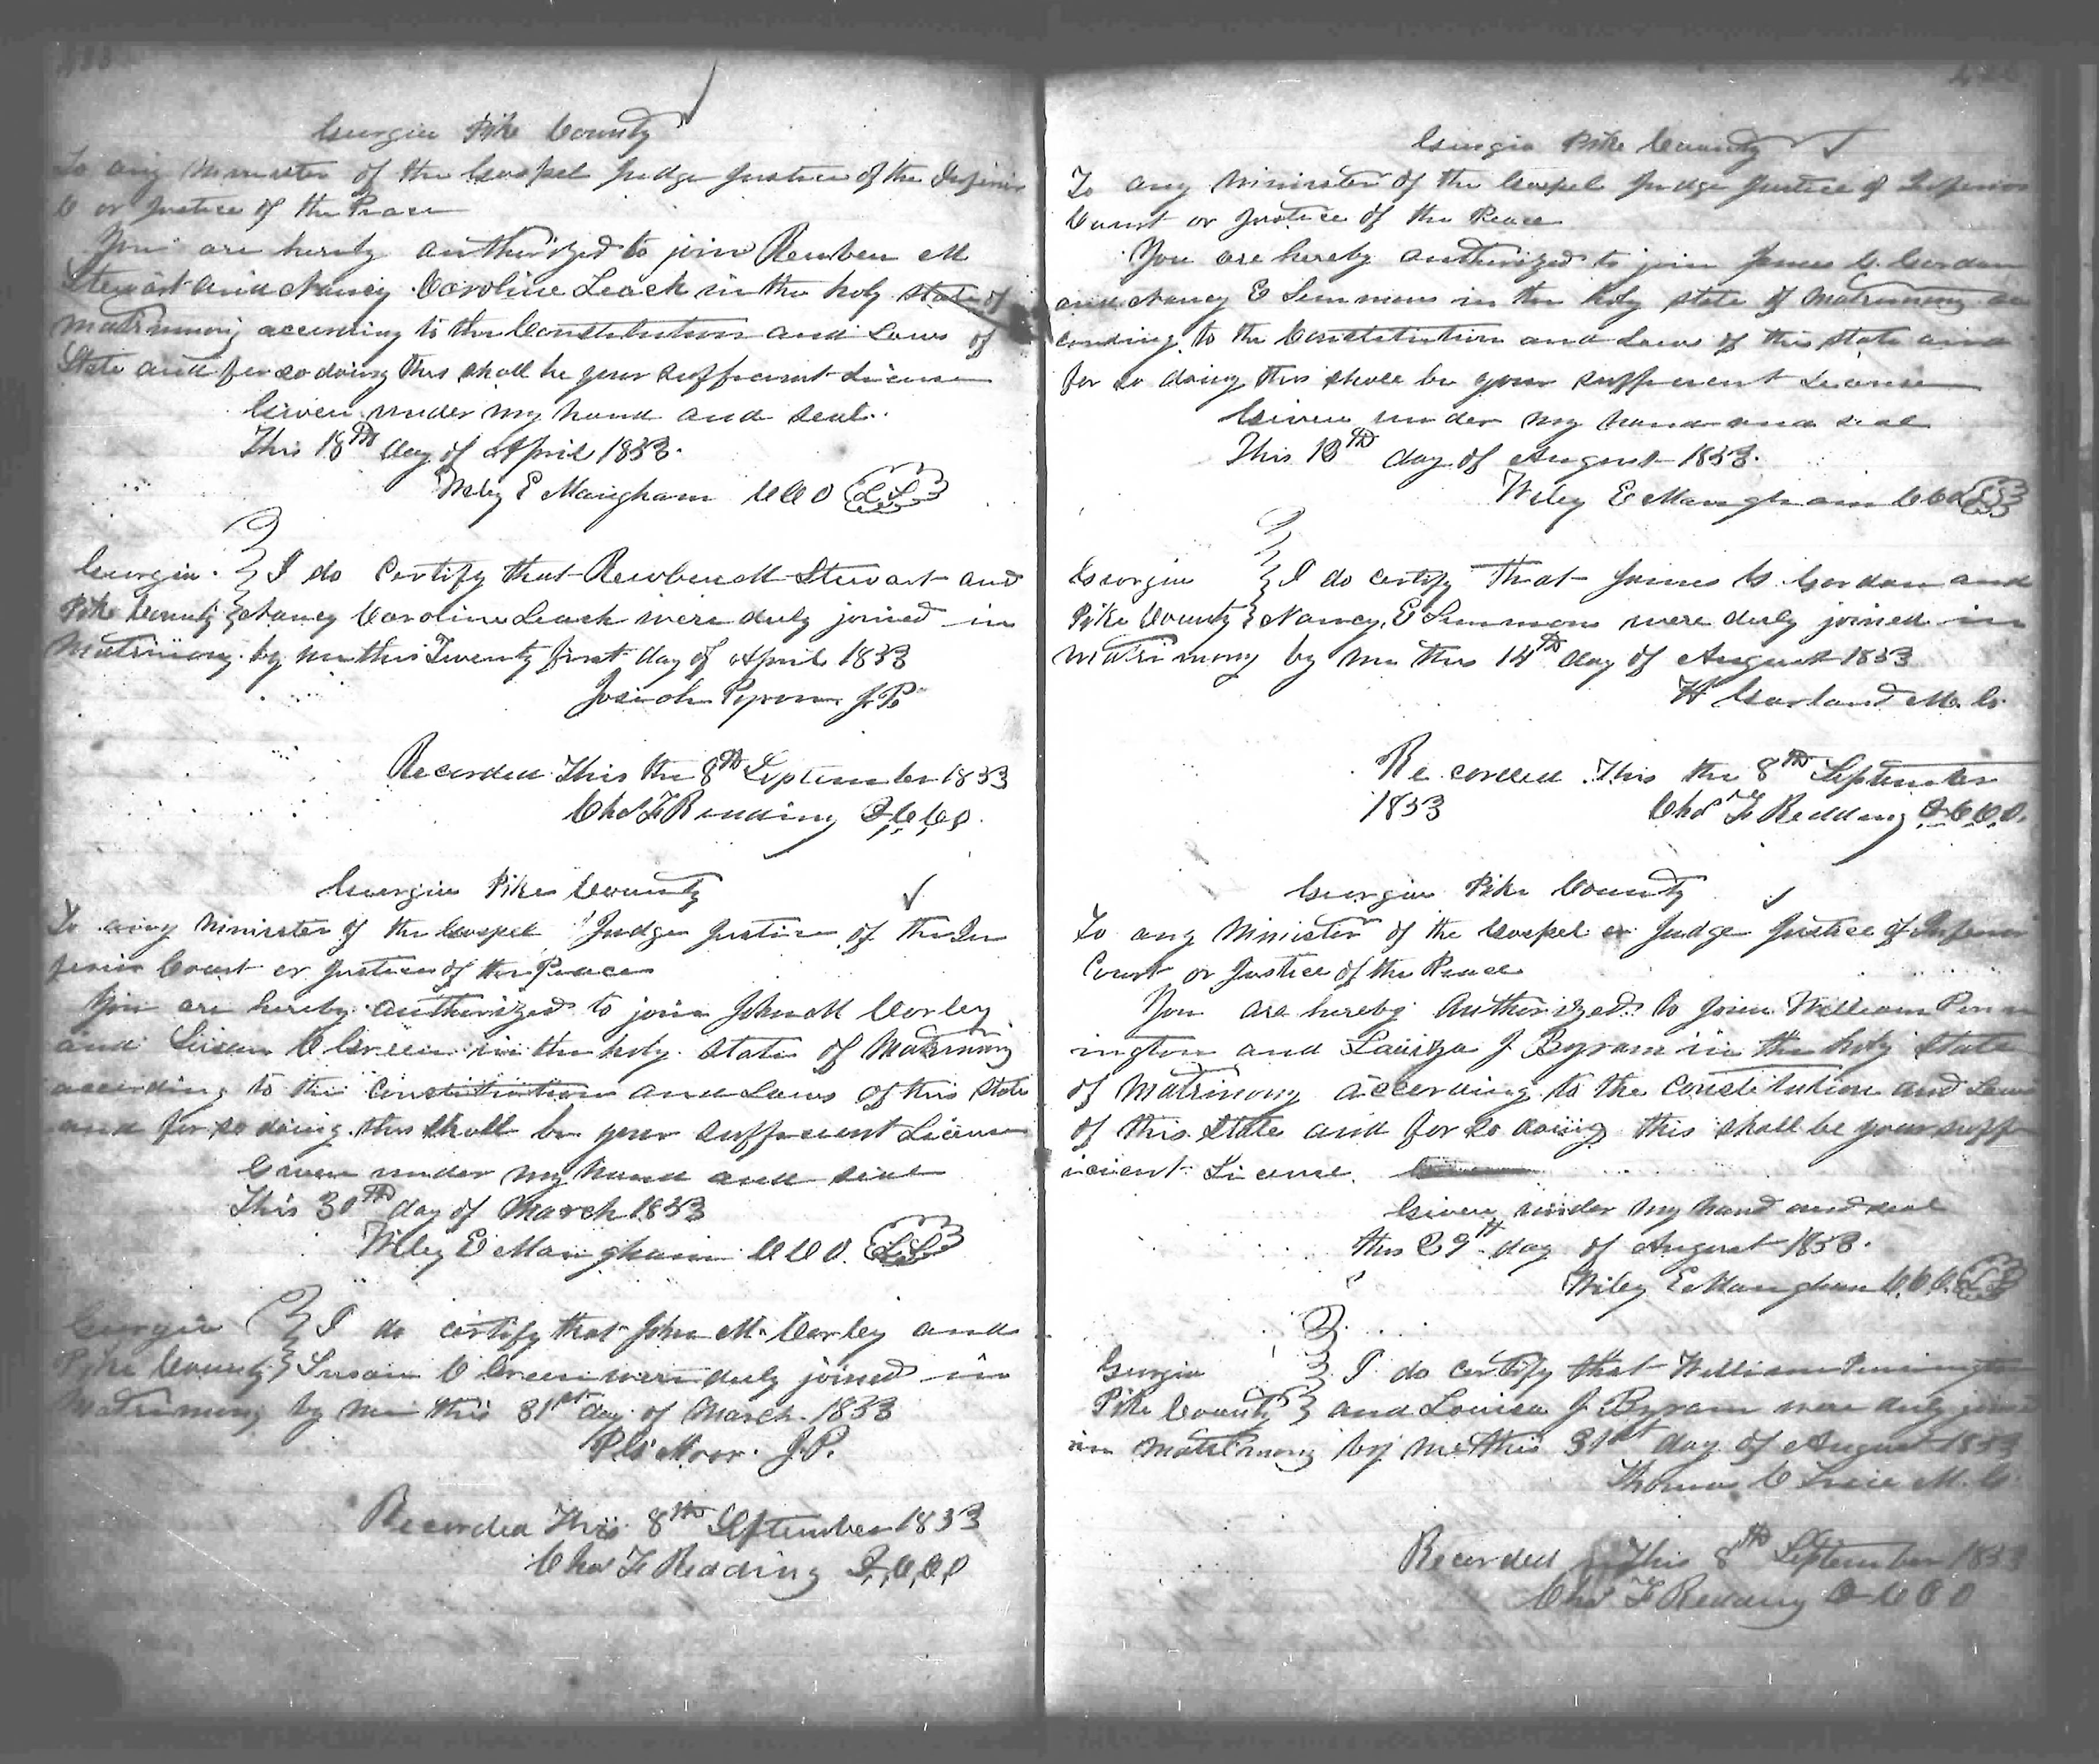 Georgia Pike County
To any Minister of the Gospel Judge Justice of the Inferior
C or Justice of the Peace
You are hereby authorized to join Reuben M
Stewart and Nancy Caroline Leach in the holy state of
Matrimony according to the Constitution and Laws of
State and for so doing this shall be your sufficient License
Given under my hand and seal
This 18th day of April 1853.
Wiley E Mangham CCO LS
Georgia I do Certify that Reuben M Stewart and
Pike County Nancy Caroline Leach were duly joined in
Matrimony by me this Twenty first day of April 1853
Josiah JP
Recorded This the 8th September 1853
Chas F Redding D,C,C,O.
Georgia Pike County
To any Minister of the Gospel Judge Justice of the In
ferior Court or Justice of the Peace
You are hereby authorized to join John M Corley
and Susan C Green in the holy state of Matrimony
according to the Constitution and Laws of this State
and for so doing this shall be your sufficient License
Given under my hand and seal
This 30th day of March 1853
Wiley E Mangham CCO. LS
Georgia I do certify that John M. Corley and
Pike County Susan C Green were duly joined in
Matrimony by me this 31st day of March. 1853
J.P.
Recorded This 8th September 1853
Chas F Redding D,C,C,O
Georgia Pike County
To any Minister of the Gospel Judge Justice of Inferior
Court or Justice of the Peace
You are hereby authorized to join James C. Gordan
and Nancy E Simmons in the holy state of Matrimony ac
cording to the Constitution and Laws of this State and
for so doing this shall be your sufficient License
Given under my hand and seal
This 13th day of August 1853.
Wiley E Mangham CCO LS
Georgia I do certify That James C. Gordan and
Pike County Nancy, E Simmons were duly joined in
Matrimony by me this 14th day of August 1853
H Garland M. G.
Recorded This the 8th September
1853 Chas F Redding D.C.C.O.
Georgia Pike County
To any Minister of the Gospel or Judge Justice of Inferior
Court or Justice of the Peace
You are hereby Authorized to join William Penn
ington and Louiza J Byram in the holy state
of Matrimony according to the Constitution and Laws
of this State and for so doing this shall be your suff
icient License.
Given under my hand and seal
this 29th day of August 1853.
Wiley E Mangham C.C.O. LS
Georgia I do certify that William Pennington
Pike County and Louisa J Byram were duly joined
in Matrimony by me this 31st day of August 1853
Thomas C Trice M. G.
Recorded This 8th September 1853
Chas F Redding D C C O